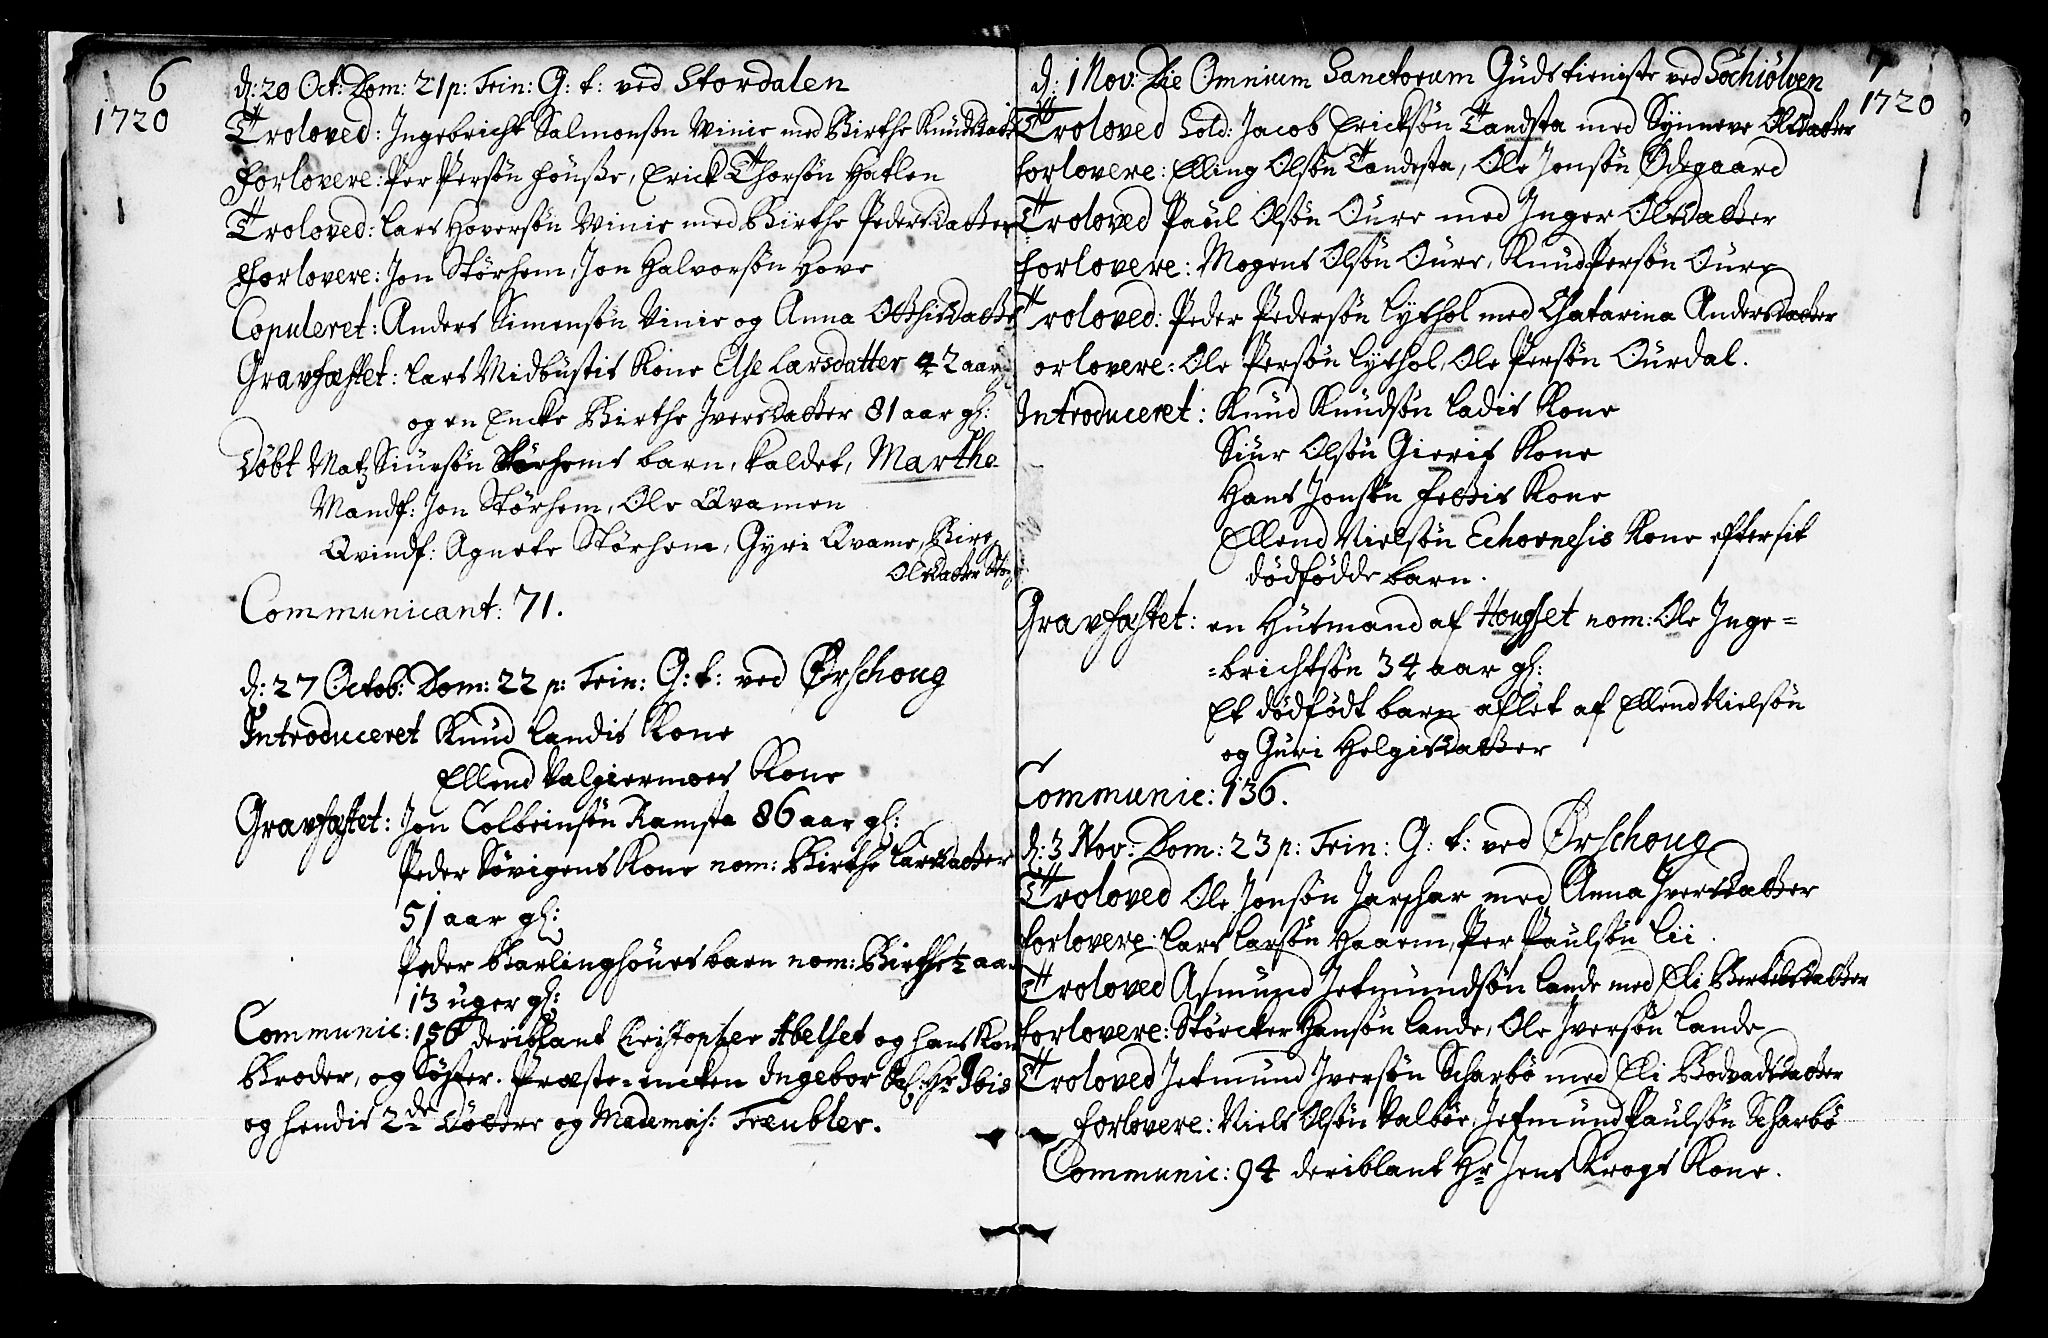 6
1720
d: 20 Oct: Dom: 21 p: Trin: G: t: ved Stordalen
Troloved: Ingebricht Salmonsøn Winie med Birthe Knudsdatter
Forlovere: Per Persøn Fousße, Erick Thorsøn Hatlen
Troloved: Lars Hoversøn Winie med Birthe Pedersdatter
Forlovere: Jon Størhem, Jon Halvorsøn Hove
Copuleret: Anders Simensøn Vinie og Anna Otthisdatter
Gravfæstet: Lars Midbustis Kone Else Larsdatter 42 aar
og en Encke Birthe Iversdatter 81 aar gl:
Døbt Matz Siursøn Størhems barn, kaldet, Marthe
Mandf: Jon Størhem, Ole Qvamen
Qvindf: Agnete Størhem, Gyri Qvame, Birte
Olsdatter Stor
Communicant: 71.
d: 27 Octob: Dom: 22 p: Trin: G: t: ved Ørschoug
Introduceret Knud Landis Kone
Ellend Valgiermoes Kone
Gravfæstet: Jon Colbeinsøn Ramsta 86 aar gl:
Peder Søvigens Kone nom: Birthe Larsdatter
51 aar gl:
Peder Barlinghoues barn nom: Birthe ½ aar
13 uger gl:
Communic: 156 deriblant Christopher Abelset og hans Kone
Broder, og Søster. Præste-encken Ingebor Sl: Hr Ibis
og hendis 2de Døttre og Mademois: Treubler.
7
1720
d: 1 Nov: Die Omnium Sanctorum Gudstieniste ved Søchiølven
Troloved Sold: Jacob Ericksøn Tandsta med Synneve Olsdatter
Forlovere: Elling Olsøn Tandesta, Ole Jonsøn Ødegaard
Troloved Paul Olsøn Oure med Inger Olsdatter
Forlovere: Mogens Olsøn Oure, Knud Persøn Oure
Troloved: Peder Pedersøn Lythol med Chatarina Andersdatter
orlovere: Ole Persøn Lythol, Ole Persøn Ourdal.
Introduceret: Knud Knudsøn Ladis Kone
Siur Olsøn Gieris Kone
Hans Jonsøn Fettis Kone
Ellend Nielsøn Echornesis Kone efter sit
dødfødde barn.
Gravfæstet: en Husmand af Hougset nom: Ole Inge=
=brichtsøn 34 aar gl:
Et dødfødt barn aflet af Ellend Nielsøn
og Guri Helgisdatter
Communic: 136.
d: 3 Nov: Dom: 23 p: Trin: G: t: ved Ørschoug
Troloved Ole Jonsøn Jarschar med Anna Iversdatter
Forlovere: Lars Larsøn Haarm, Per Paulsøn Lii.
Troloved Asmund Jetmundsøn Lande med Eli Bertelsdatter
Forlovere: Størcker Hansøn Lande, Ole Iversøn Lande
Troloved Jetmund Iversøn Scharbø med Eli Bodvadsdatter
Forlovere: Niels Olsøn Valbøe, Jetmund Paulsøn Scharbø
Communic: 94 deriblant Hr Jens Krogs Kone.